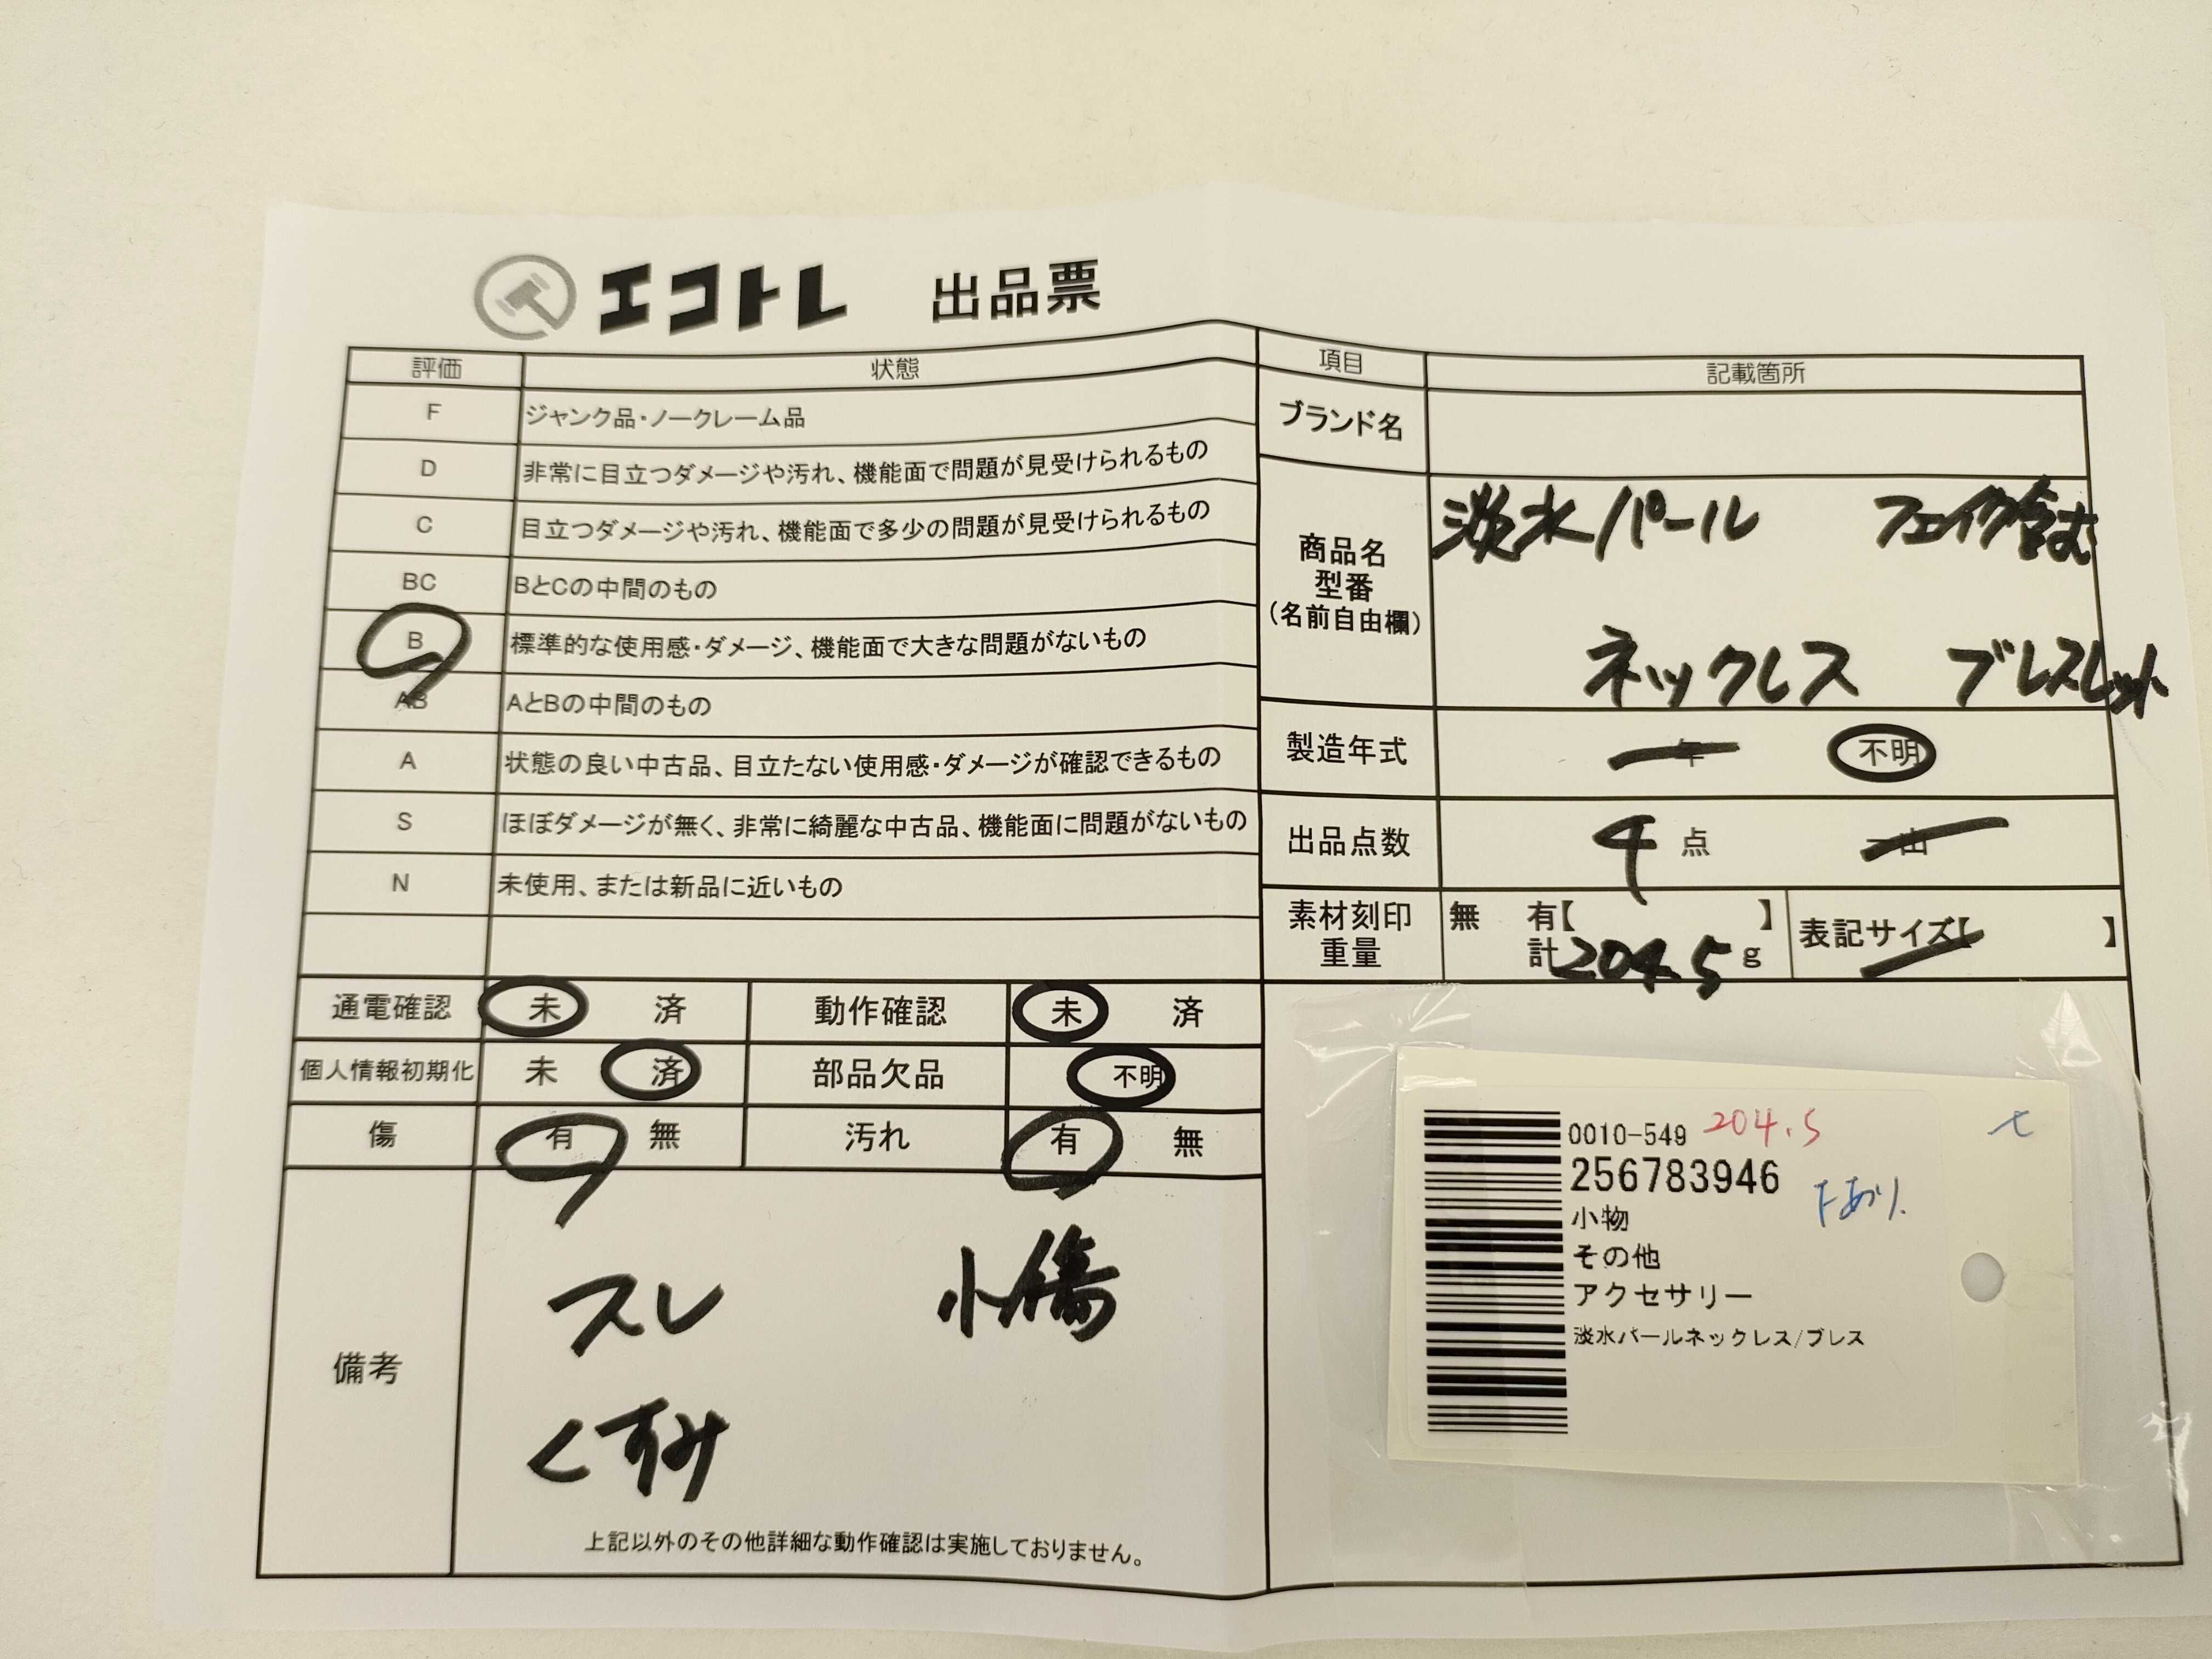 エコトレ 出品票
評価 状態
F ジャンク品・ノークレーム品
D 非常に目立つダメージや汚れ、機能面で問題が見受けられるもの
C 目立つダメージや汚れ、機能面で多少の問題が見受けられるもの
BC BとCの中間のもの
B 標準的な使用感・ダメージ、機能面で大きな問題がないもの
AB AとBの中間のもの
A 状態の良い中古品、目立たない使用感・ダメージが確認できるもの
S ほぼダメージが無く、非常に綺麗な中古品、機能面に問題がないもの
N 未使用、または新品に近いもの
通電確認 未 済 動作確認 未 済
個人情報初期化 未 済 部品欠品 不明
傷 有 無 汚れ 有 無
備考
スレ 小傷
くすみ
上記以外のその他詳細な動作確認は実施しておりません。
項目 記載箇所
ブランド名
商品名
型番
(名前自由欄)
淡水パール フェイク含む
ネックレス ブレスレット
製造年式 年 不明
出品点数 4 点 一山
素材刻印 無 有【 】
重量 計 204.5 g
表記サイズ【 】
0010-549 204.5
256783946
小物
その他
アクセサリー
淡水パールネックレス/ブレス